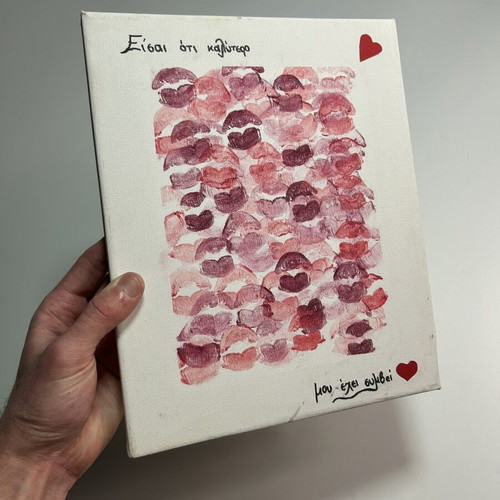 Είσαι ότι καλύτερο
μου έχει συμβεί